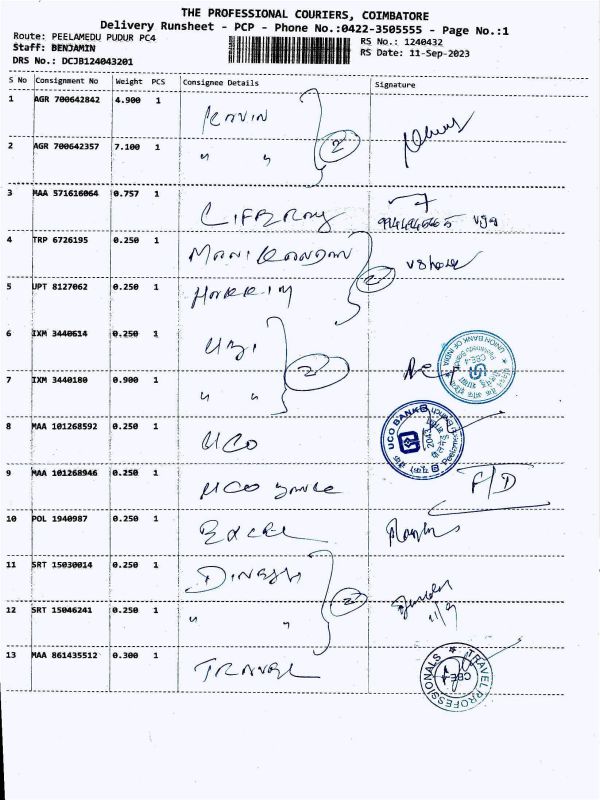 THE PROFESSIONAL COURIERS, COIMBATORE
Delivery Runsheet - PCP - Phone No.:0422-3505555 - Page No.:1
Route: PEELAMEDU PUDUR PC4
RS No.: 1240432
Staff: BENJAMIN
RS Date: 11-Sep-2023
DRS No.: DCJB124043201
S No Consignment No Weight PCS Consignee Details Signature
1 AGR 700642842 4.900 1 KAVIN
2 AGR 700642357 7.100 1 " " 2
3 MAA 571616064 0.757 1
4 TRP 6726195 0.250 1 MANIKANDAN
5 UPT 8127062 0.250 1 2
6 IXM 3440614 0.250 1 UBI
UNION BANK OF INDIA
7 IXM 3440180 0.900 1 " " 2
8 MAA 101268592 0.250 1 UCO
UCO BANK
9 MAA 101268946 0.250 1 UCO F/D
10 POL 1940987 0.250 1 EXCEL
11 SRT 15030014 0.250 1 DINESH
12 SRT 15046241 0.250 1 " " 2 11/9
13 MAA 861435512 0.300 1 TRAVEL
TRAVEL PROFESSIONALS
CBE